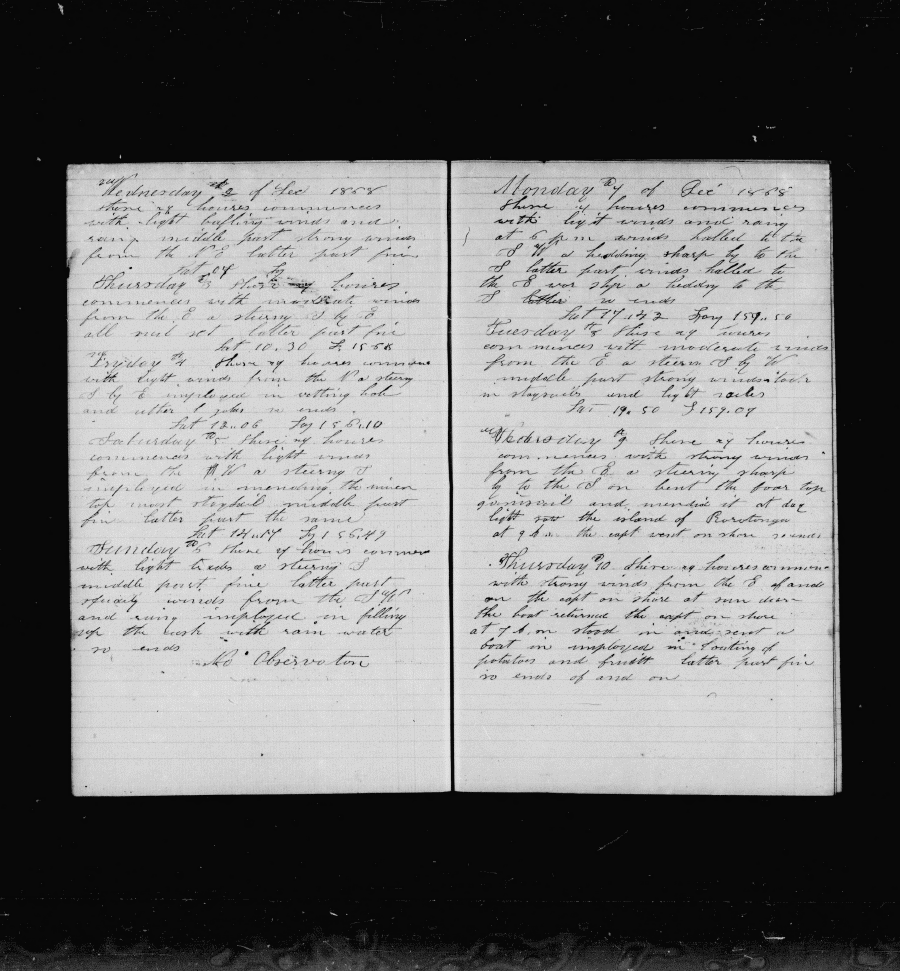 Wednesday th 2 of Dec 1868
these 24 houres commences
with light bafling winds and
rain middle part strong winds
from the N E latter part fine
Lat 04
Thursday th 3 these 24 houres
commences with moderate winds
from the E a steering S by E
all sail set latter part fine
Lat 10.30 L 155
Fryday th 4 these 24 houres commences
with light winds from the N a steering
S by E imployed in
and other jobs so ends
Lat 12.06 Log 156.10
Saturday th 5 these 24 houres
commences with light winds
from the N W a steering S
imployed in mending the mizen
top mast staysail middle part
fine latter part the same
Lat 14.17 Log 156.49
Sunday th 6 these 24 houres commences
with light trades a steering S
middle part fine latter part
squaly winds from the S W
and rain imployed in filling
up the cask with rain water
so ends
No Observaton
Monday th 7 of Dec 1868
these 24 houres commences
with light winds and rain
at 5 p m winds halled to the
S W a hedding sharp by to the
S latter part winds halled to
the E war ship a heddng to the
S so ends
Lat 17.42 Long 159..50
Tuesday th 8 these 24 houres
commences with moderate winds
from the E a steern S by W
middle part strong winds took
in staysails and light sailes
Lat 19.50 L 159.09
Wedersday th 9 these 24 houres
commences with strong winds
from the E a steering sharp
by to the S on bent the foar top
and mended it at day
light saw the island of Rorotonga
at 9 A.m. the capt went on shore so ends
Thursday th 10 these 24 houres commenc
with strong winds from the E of and
on the capt on shore at sun down
the boat returned the capt on shore
at 7 A.m stood in and sent a
boat in imployed in boating of
potatoes and fruitt latter part fine
so ends of and on